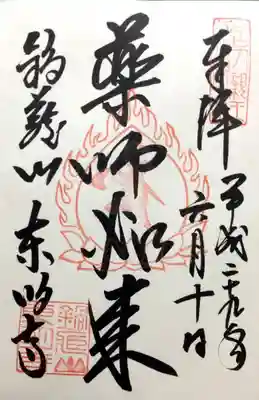 奉拝
平成二十九年
六月十日
薬師如来
鍋蔵山東明寺